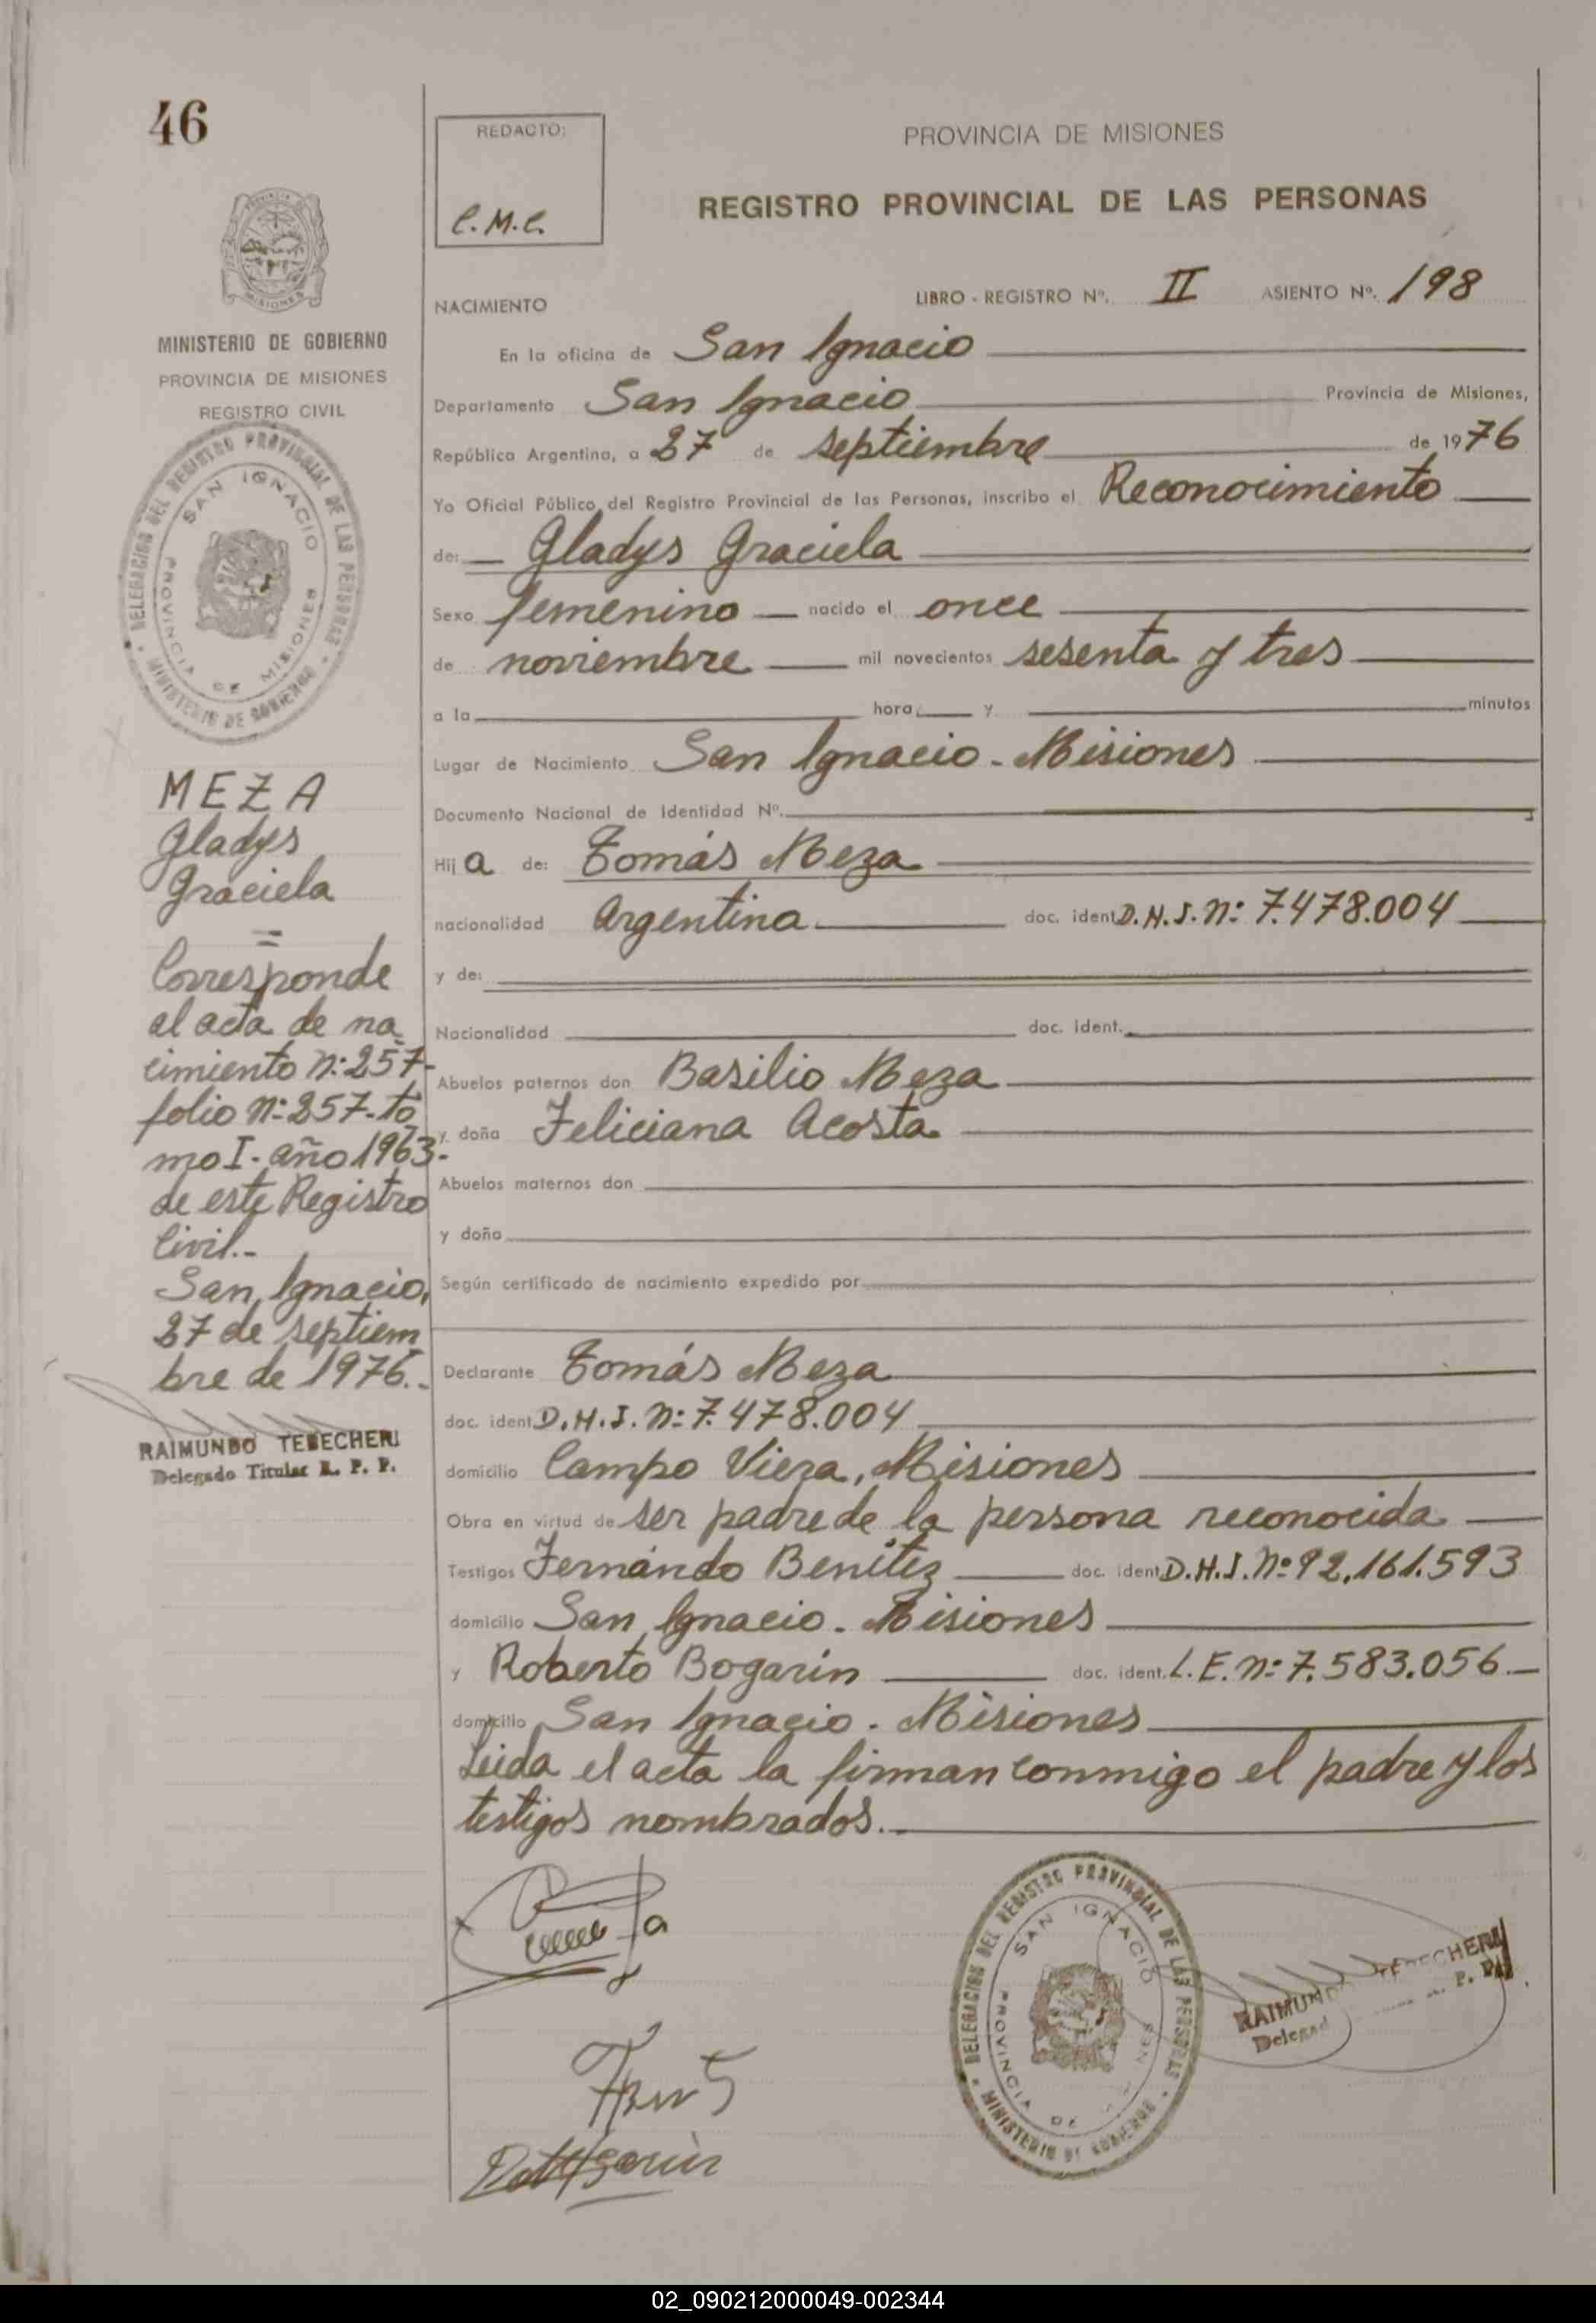 46
MINISTERIO DE GOBIERNO
PROVINCIA DE MISIONES
REGISTRO CIVIL
DELEGACION DEL REGISTRO PROVINCIAL DE LAS PERSONAS
SAN IGNACIO
PROVINCIA DE MISIONES
MINISTERIO DE GOBIERNO
MEZA
Gladys
Graciela
=
Corresponde
al acta de na
cimiento Nº: 257-
folio Nº 257- to
mo I- año 1963-
de este Registro
Civil.-
San Ignacio,
27 de septiem
bre de 1976.-
RAIMUNDO TEBECHERI
Delegado Titular R. P. P.
REDACTO:
C.M.C.
PROVINCIA DE MISIONES
REGISTRO PROVINCIAL DE LAS PERSONAS
NACIMIENTO
LIBRO - REGISTRO Nº. II ASIENTO Nº. 198
En la oficina de San Ignacio
Departamento San Ignacio Provincia de Misiones,
República Argentina, a 27 de septiembre de 1976
Yo Oficial Público del Registro Provincial de las Personas, inscribo el Reconocimiento
de: Gladys Graciela
Sexo femenino nacido el once
de noviembre mil novecientos sesenta y tres
a la hora y minutos
Lugar de Nacimiento San Ignacio - Misiones
Documento Nacional de Identidad Nº.
Hija de: Tomás Meza
nacionalidad Argentina doc. ident. D.N.I. Nº: 7.478.004
y de:
Nacionalidad doc. ident.
Abuelos paternos don Basilio Meza
y doña Feliciana Acosta
Abuelos maternos don
y doña
Según certificado de nacimiento expedido por
Declarante Tomás Meza
doc. ident. D.N.I. Nº: 7.478.004
domicilio Campo Viera, Misiones
Obra en virtud de ser padre de la persona reconocida
Testigos Fernándo Benítez doc. ident. D.N.I. Nº 92.161.593
domicilio San Ignacio - Misiones
y Roberto Bogarín doc. ident. L.E. Nº: 7.583.056
domicilio San Ignacio - Misiones
Leida el acta la firman conmigo el padre y los
testigos nombrados.-
DELEGACION DEL REGISTRO PROVINCIAL DE LAS PERSONAS
SAN IGNACIO
PROVINCIA DE
MINISTERIO DE GOBIERNO
RAIMUNDO TEBECHERI
02_090212000049-002344